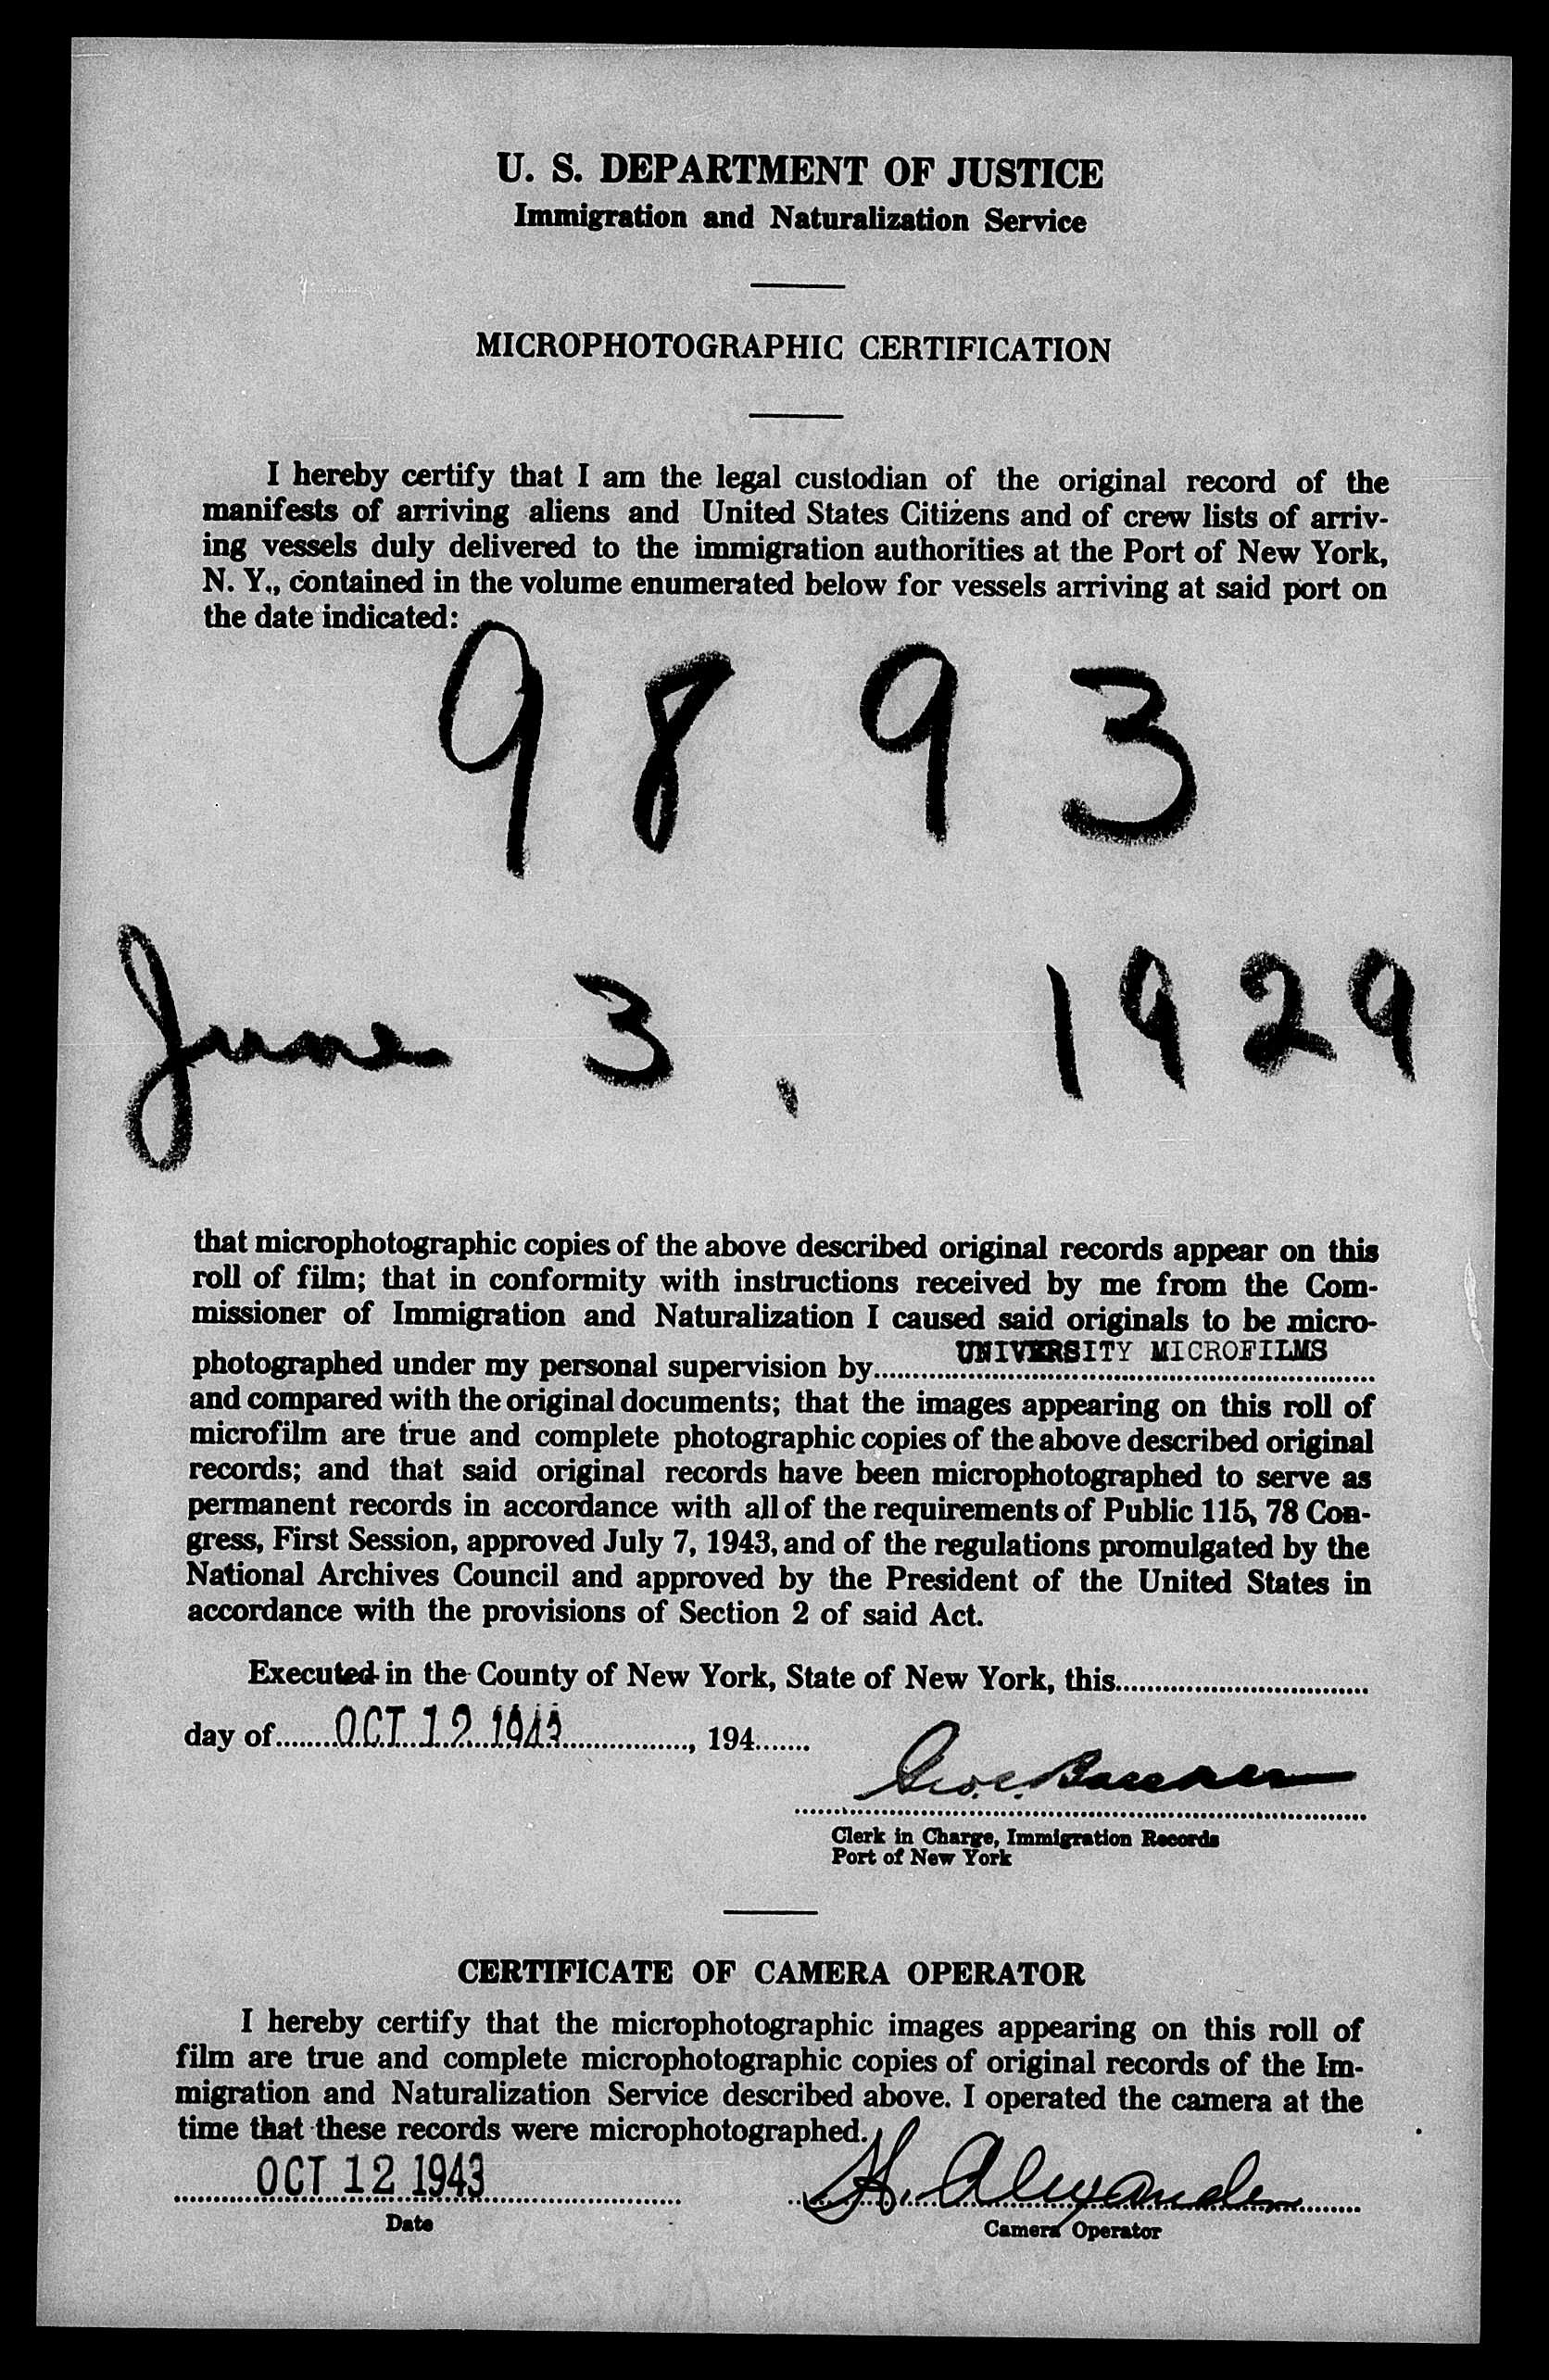 U. S. DEPARTMENT OF JUSTICE
Immigration and Naturalization Service
MICROPHOTOGRAPHIC CERTIFICATION
I hereby certify that I am the legal custodian of the original record of the
manifests of arriving aliens and United States Citizens and of crew lists of arriv-
ing vessels duly delivered to the immigration authorities at the Port of New York,
N. Y., contained in the volume enumerated below for vessels arriving at said port on
the date indicated:
9893
June 3, 1929
that microphotographic copies of the above described original records appear on this
roll of film; that in conformity with instructions received by me from the Com-
missioner of Immigration and Naturalization I caused said originals to be micro-
photographed under my personal supervision by UNIVERSITY MICROFILMS
and compared with the original documents; that the images appearing on this roll of
microfilm are true and complete photographic copies of the above described original
records; and that said original records have been microphotographed to serve as
permanent records in accordance with all of the requirements of Public 115, 78 Con-
gress, First Session, approved July 7, 1943, and of the regulations promulgated by the
National Archives Council and approved by the President of the United States in
accordance with the provisions of Section 2 of said Act.
Executed in the County of New York, State of New York, this
day of OCT 12 1943, 194
Geo. C.
Clerk in Charge, Immigration Records
Port of New York
CERTIFICATE OF CAMERA OPERATOR
I hereby certify that the microphotographic images appearing on this roll of
film are true and complete microphotographic copies of original records of the Im-
migration and Naturalization Service described above. I operated the camera at the
time that these records were microphotographed.
OCT 12 1943 H. Alexander
Date Camera Operator